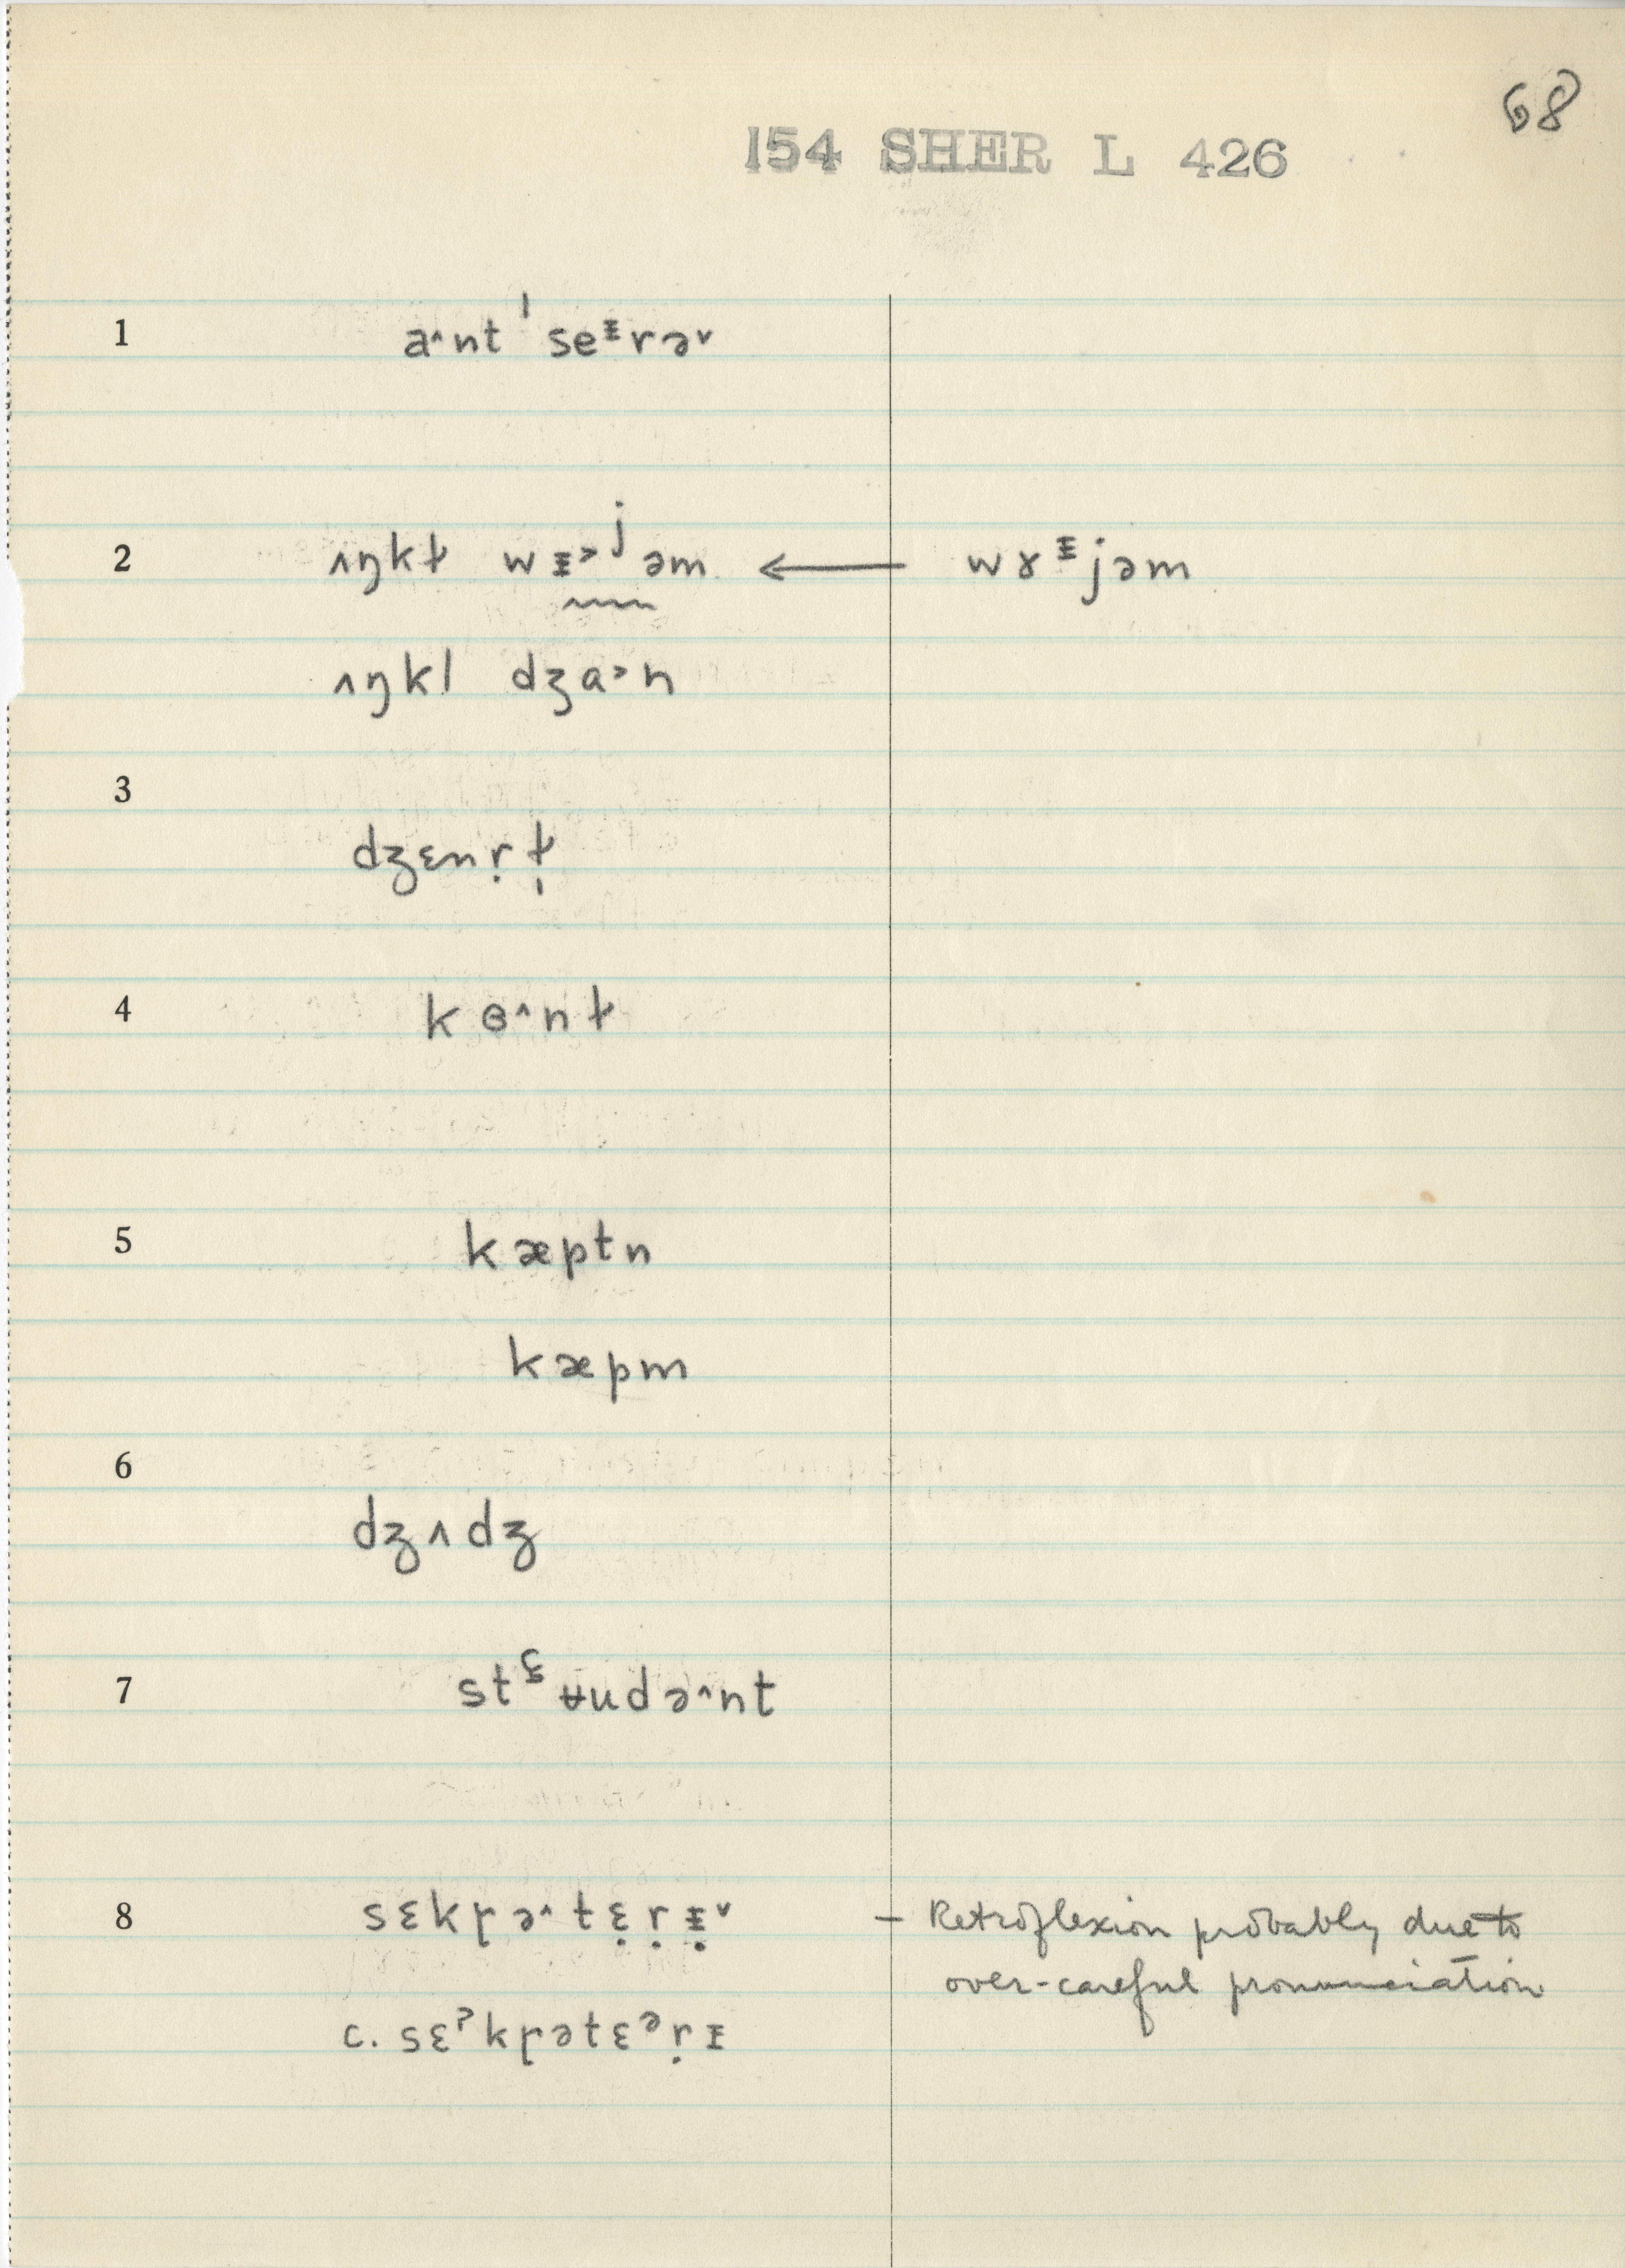 68
154 SHER L 426
1 a˄nt ˈseᵻrə˅
2 ʌŋkɫ wᵻ˃ʲəm ← wɤᵻjəm
ʌŋkl dʒa˃n
3
dʒɛnṛɫ̩
4 kɵ˄nɫ
5 kæptn
kæpm
6
dʒʌdʒ
7 stʉudə˄nt
8 sɛkɼə˄tɛ̣ṛᵻ̣˅ – Retroflexion probably due to
over-careful pronunciation
c. sɛˀkɼətɛᵊṛɪ